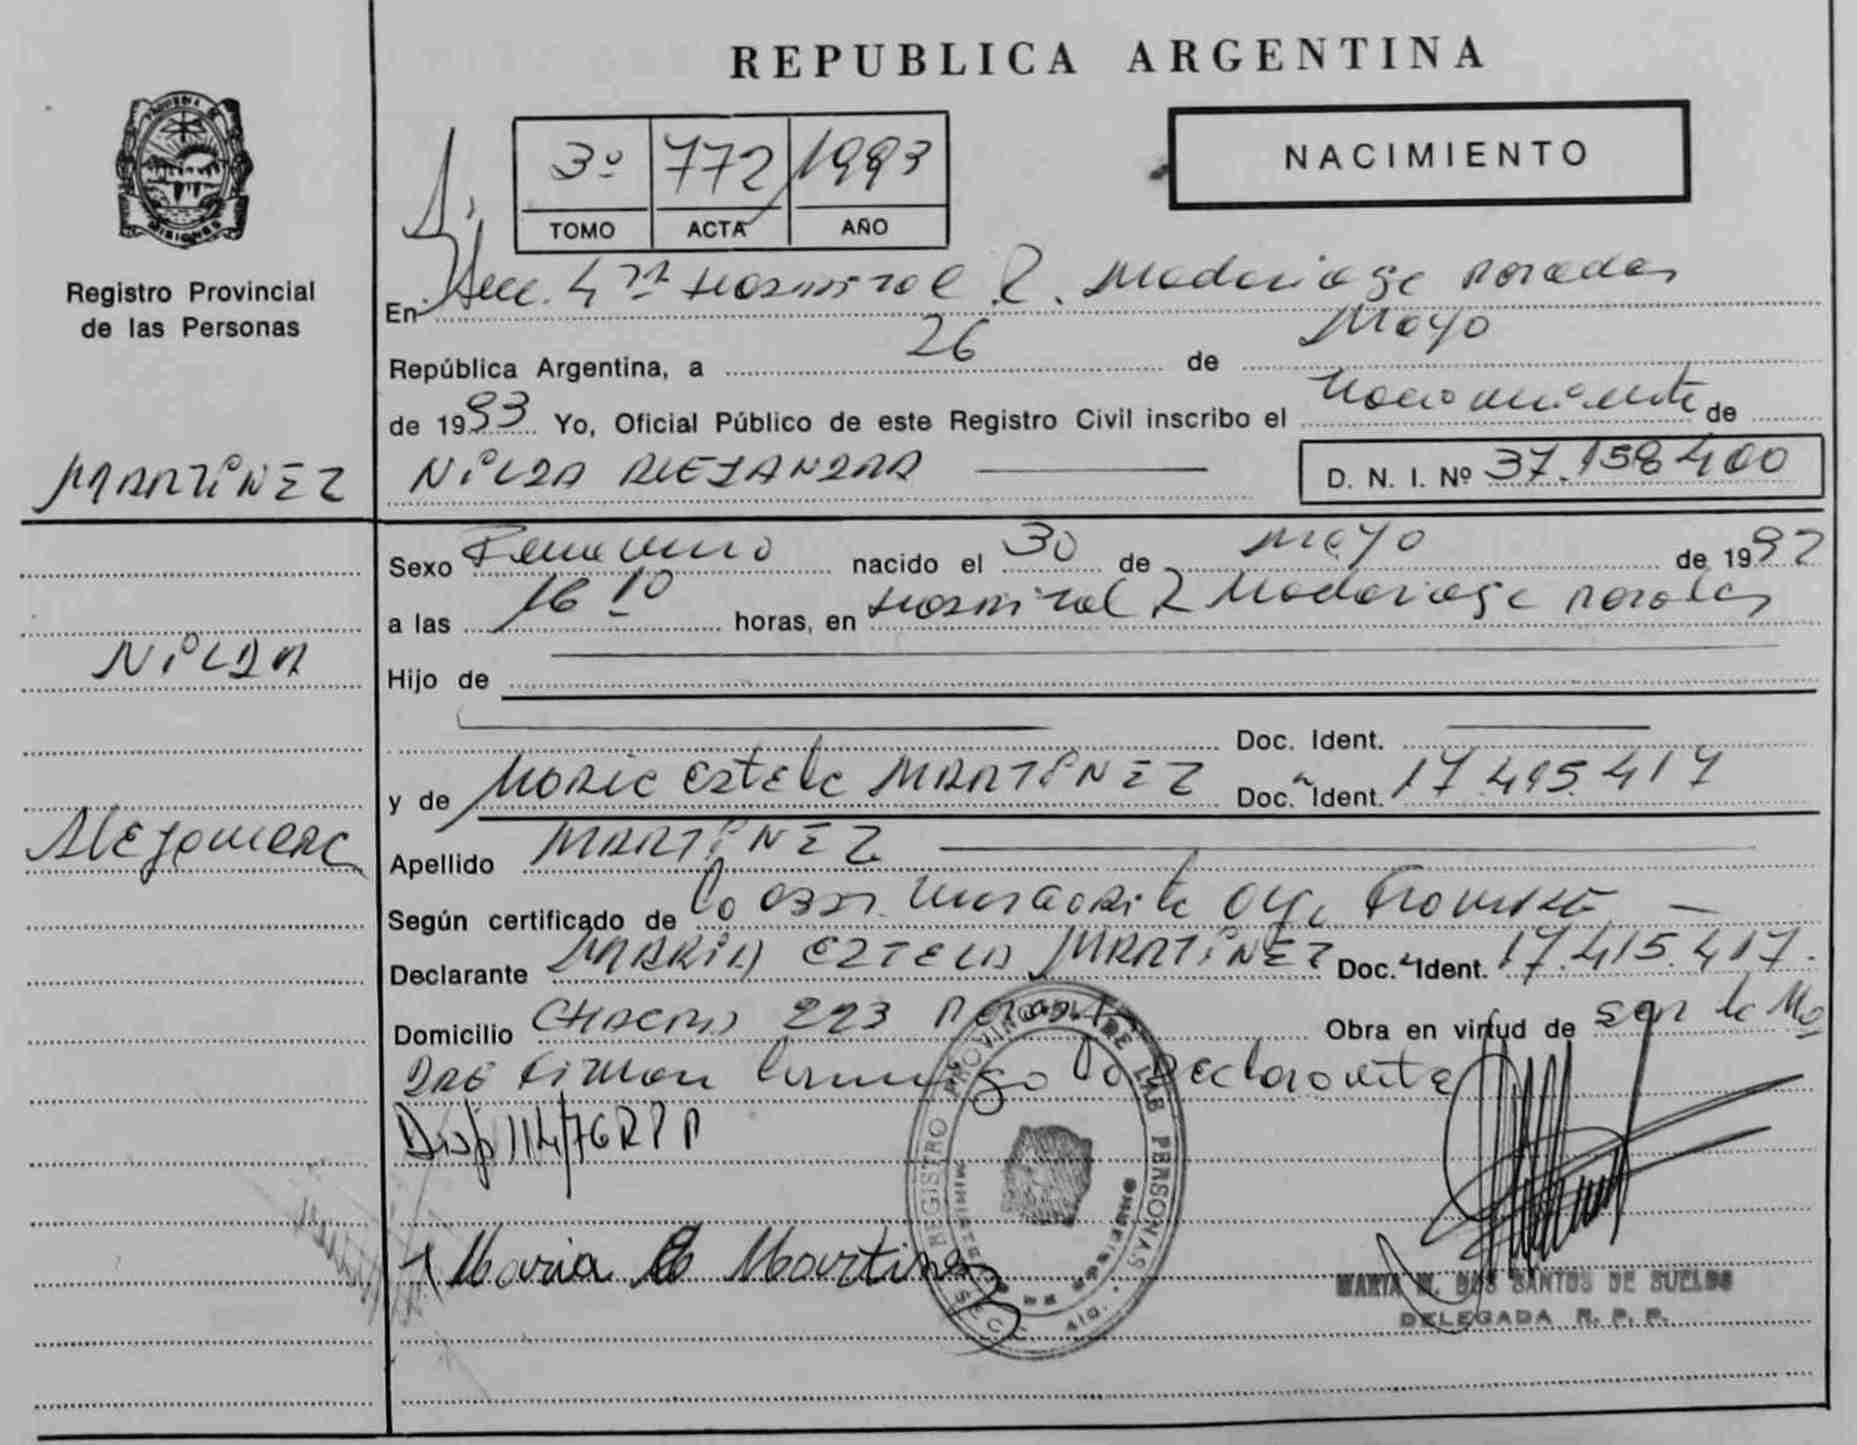 REPUBLICA ARGENTINA
NACIMIENTO
3º 772 1993
TOMO ACTA AÑO
Registro Provincial
de las Personas
En Secc. 4ta Hospital R. Madariaga Posadas
República Argentina, a 26 de Mayo
de 1993 Yo, Oficial Público de este Registro Civil inscribo el Nacimiento de
MARTINEZ NILDA ALEJANDRA
D. N. I. Nº 37.158.400
Sexo Femenino nacido el 30 de Mayo de 1992
a las 16 10 horas, en Hospital R Madariaga Posadas
NILDA
Hijo de
Doc. Ident.
y de Maria Estela MARTINEZ Doc. Ident. 17.415.417
Alejandra
Apellido MARTINEZ
Según certificado de la Obst. Margarita
Declarante MARIA ESTELA MARTINEZ Doc. Ident. 17.415.417.
Domicilio CHACRA 223 Posadas Obra en virtud de ser la Ma
dre Firman conmigo la Declarante
Disp 114/76 RPP
Maria E Martinez
REGISTRO PROVINCIAL DE LAS PERSONAS
MARTA M. DOS SANTOS DE SUELOS
DELEGADA R. P. P.